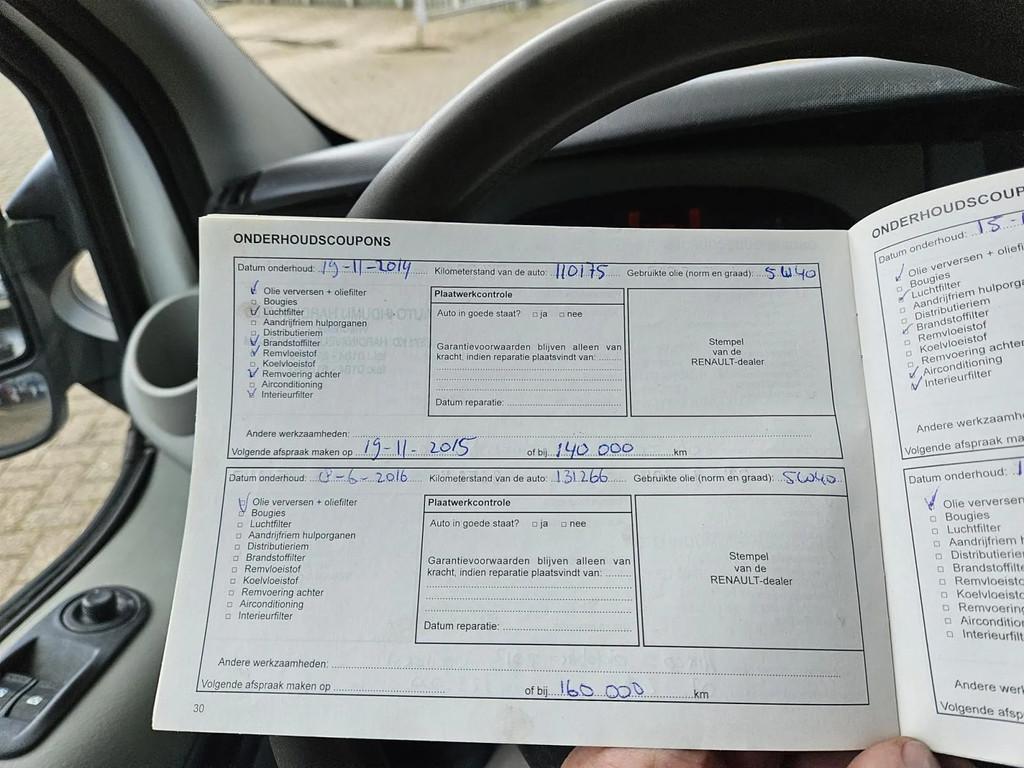 ONDERHOUDSCOUPONS
Datum onderhoud: 19-11-2014 Kilometerstand van de auto: 110175 Gebruikte olie (norm en graad): 5W40
Olie verversen + oliefilter
Bougies
Luchtfilter
Aandrijfriem hulporganen
Distributieriem
Brandstoffilter
Remvloeistof
Koelvloeistof
Remvoering achter
Airconditioning
Interieurfilter
Plaatwerkcontrole
Auto in goede staat? ja nee
Garantievoorwaarden blijven alleen van
kracht, indien reparatie plaatsvindt van:
Datum reparatie:
Stempel
van de
RENAULT-dealer
Andere werkzaamheden:
Volgende afspraak maken op 19-11-2015 of bij 140 000 km
Datum onderhoud: 8-6-2016 Kilometerstand van de auto: 131266 Gebruikte olie (norm en graad): 5W40
Olie verversen + oliefilter
Bougies
Luchtfilter
Aandrijfriem hulporganen
Distributieriem
Brandstoffilter
Remvloeistof
Koelvloeistof
Remvoering achter
Airconditioning
Interieurfilter
Plaatwerkcontrole
Auto in goede staat? ja nee
Garantievoorwaarden blijven alleen van
kracht, indien reparatie plaatsvindt van:
Datum reparatie:
Stempel
van de
RENAULT-dealer
Andere werkzaamheden:
Volgende afspraak maken op of bij 160 000 km
30
ONDERHOUDSCOUP
Datum onderhoud: 15-1
Olie verversen + oliefilter
Bougies
Luchtfilter
Aandrijfriem hulporgan
Distributieriem
Brandstoffilter
Remvloeistof
Koelvloeistof
Remvoering achter
Airconditioning
Interieurfilter
Andere werkzaamh
Volgende afspraak m
Datum onderhoud: 1
Olie verversen + oliefil
Bougies
Luchtfilter
Aandrijfriem h
Distributierie
Brandstoffilte
Remvloeisto
Koelvloeisto
Remvoering
Airconditio
Interieurfilt
Andere werk
Volgende afspra